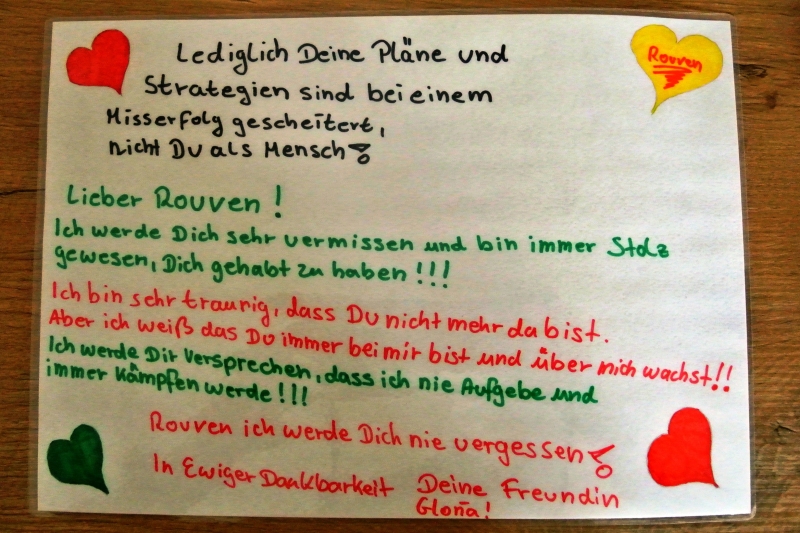 Lediglich Deine Pläne und
Rouven
Strategien sind bei einem
Misserfolg gescheitert,
nicht Du als Mensch!
Lieber Rouven!
Ich werde Dich sehr vermissen und bin immer Stolz
gewesen, Dich gehabt zu haben!!!
Ich bin sehr traurig, dass Du nicht mehr da bist.
Aber ich weiß das Du immer bei mir bist und über mich wachst!!
Ich werde Dir Versprechen, dass ich nie Aufgebe und
immer Kämpfen werde!!!
Rouven ich werde Dich nie vergessen!
In Ewiger Dankbarkeit Deine Freundin
Gloria!